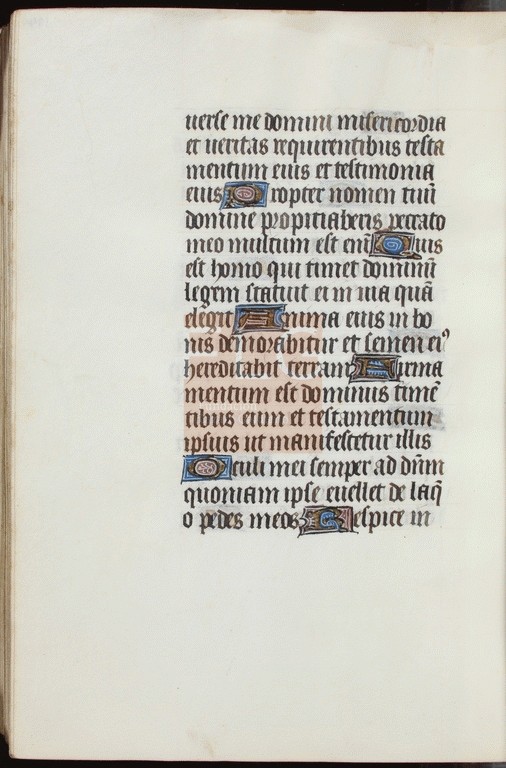 uerse me domini misericordia
et ueritas requirentibus testa
mentum eius et testimonia
eius Propter nomen tuū
domine propitiaberis peccato
meo multum est eni Quis
est homo qui timet dominū
legem statuit ei in uia quā
elegit Anima eius in bo
nis demorabitur et semen eiꝰ
hereditabit terram Firma
mentum est dominus timē
tibus eum et testamentum
ipsius ut manifestetur illis
Oculi mei semper ad dūm
quoniam ipse euellet de laq̄
o pedes meos Respice in